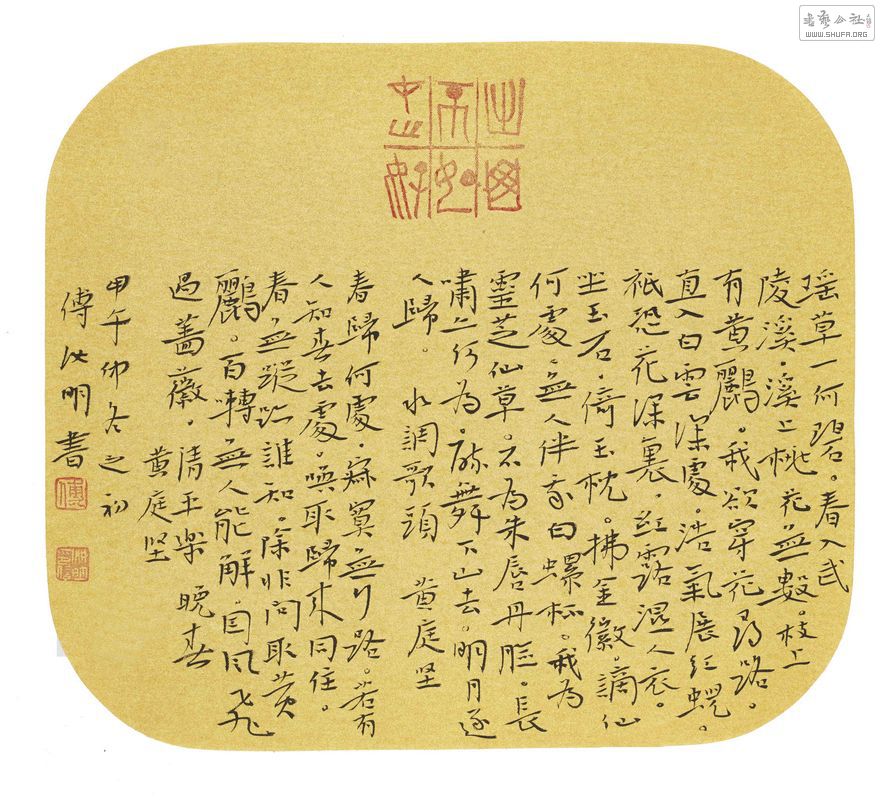 书艺公社
WWW.SHUFA.ORG
瑶草一何碧。春入武
陵溪。溪上桃花無數。枝上
有黄鸝。我欲穿花尋路。
直入白雲深處。浩氣展紅蜺。
祇恐花深裏。紅露濕人衣。
坐玉石。倚玉枕。拂金徽。謫仙
何處。無人伴我白螺杯。我為
靈芝仙草。不為朱唇丹臉。長
嘯亦何為。醉舞下山去。明月逐
人歸。 水調歌頭 黄庭坚
春歸何處。寂寞無行路。若有
人知春去處。喚取歸来同住。
春無蹤跡誰知。除非問取黄
鸝。百囀無人能解。因風飛
過薔薇。清平樂 晚春
黄庭坚
甲午仲冬之初
傅明書